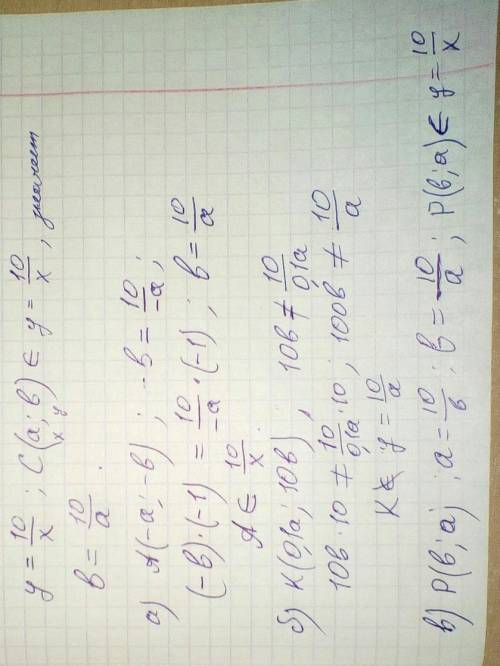 y = 10/x ; C(a; b) ∈ y = 10/x , значит
x y
в = 10/a .
а) A(-a; -в) ; -в = 10/-a ;
(-в)·(-1) = 10/-a ·(-1) ; в = 10/a
A ∈ 10/x .
б) K(0,1a; 10в) , 10в ≠ 10/0,1a
10в·10 ≠ 10/0,1a ·10 ; 100в ≠ 10/a
K ∉ y = 10/a
в) P(в; a) ; a = 10/в ; в = 10/a ; P(в; a) ∈ y = 10/x